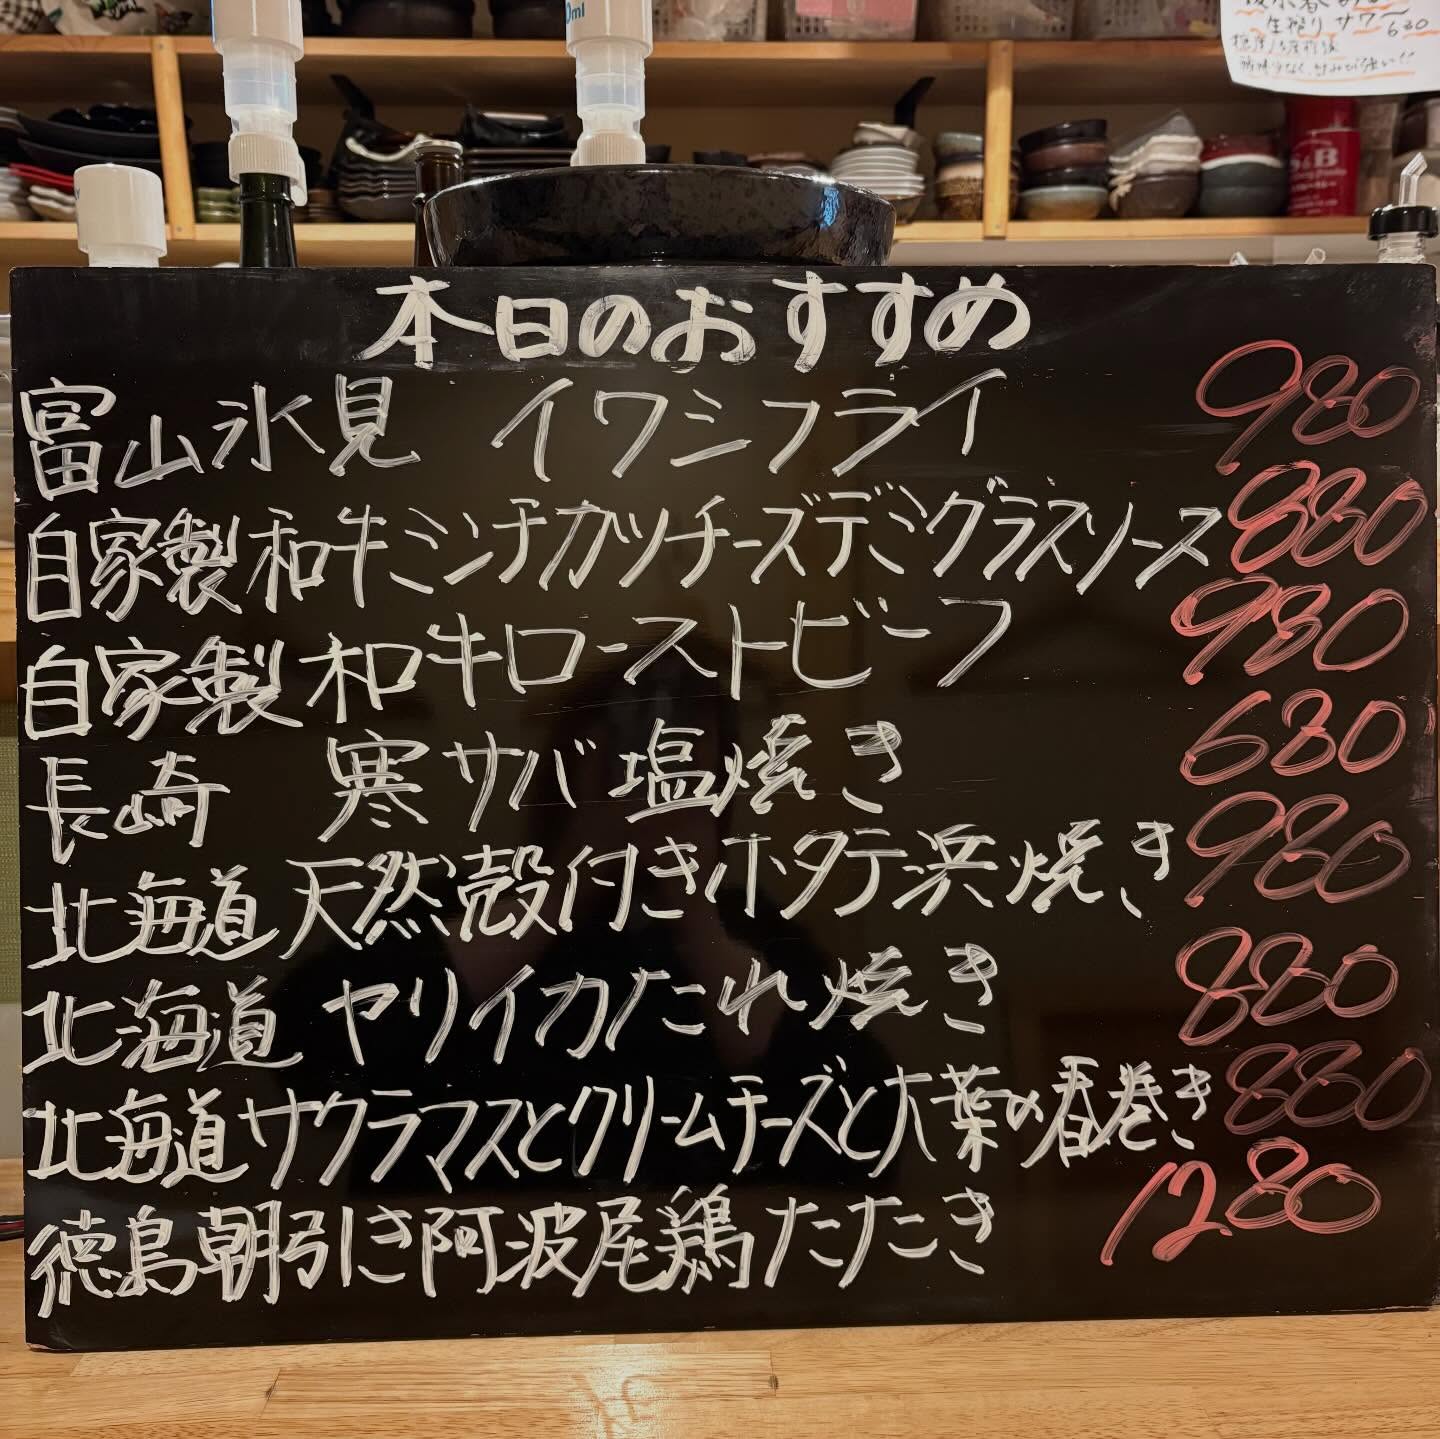 生搾りサワー 680
本日のおすすめ
富山氷見 イワシフライ 980
自家製和牛ミンチカツチーズデミグラスソース 880
自家製和牛ローストビーフ 980
長崎 寒サバ塩焼き 680
北海道天然殻付きホタテ浜焼き 980
北海道 ヤリイカたれ焼き 880
北海道サクラマスとクリームチーズと大葉の春巻き 880
徳島朝引き阿波尾鶏たたき 1280
S&B